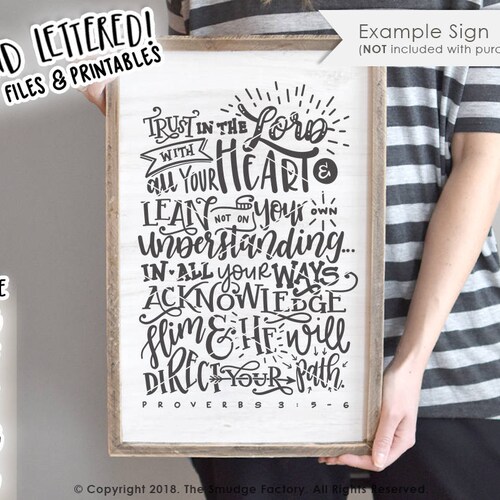 D LETTERED!
FILES & PRINTABLES
Example Sign
(NOT included with purc
TRUST IN THE Lord
WITH
all YOUR HEART &
LEAN NOT ON your OWN
understanding...
IN ALL your WAYS
ACKNOWLEDGE
Him & HE will
DIRECT YOUR path.
PROVERBS 3:5-6
© Copyright 2018. The Smudge Factory. All Rights Reserved